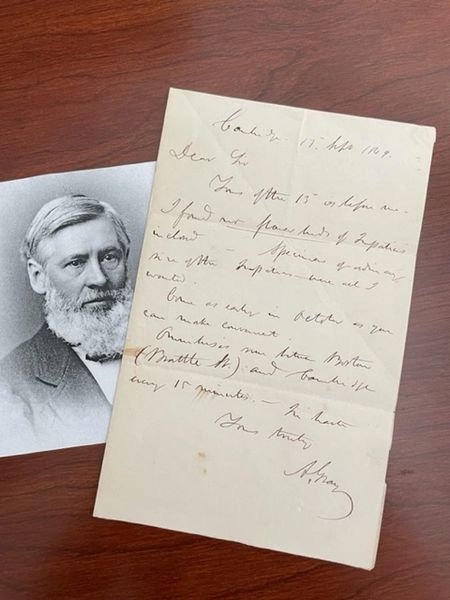 Cambridge 17. Sept 1869.
Dear Sir
Yours of the 15 is before me.
I found no flower buds of Impatiens
inclosed — Specimens of ordinary
size of the Impatiens were all I
wanted.
Come as early in October as you
can make convenient
Omnibuses run between Boston
(Brattle St.) and Cambridge
every 15 minutes. — In haste
Yours truly
A. Gray